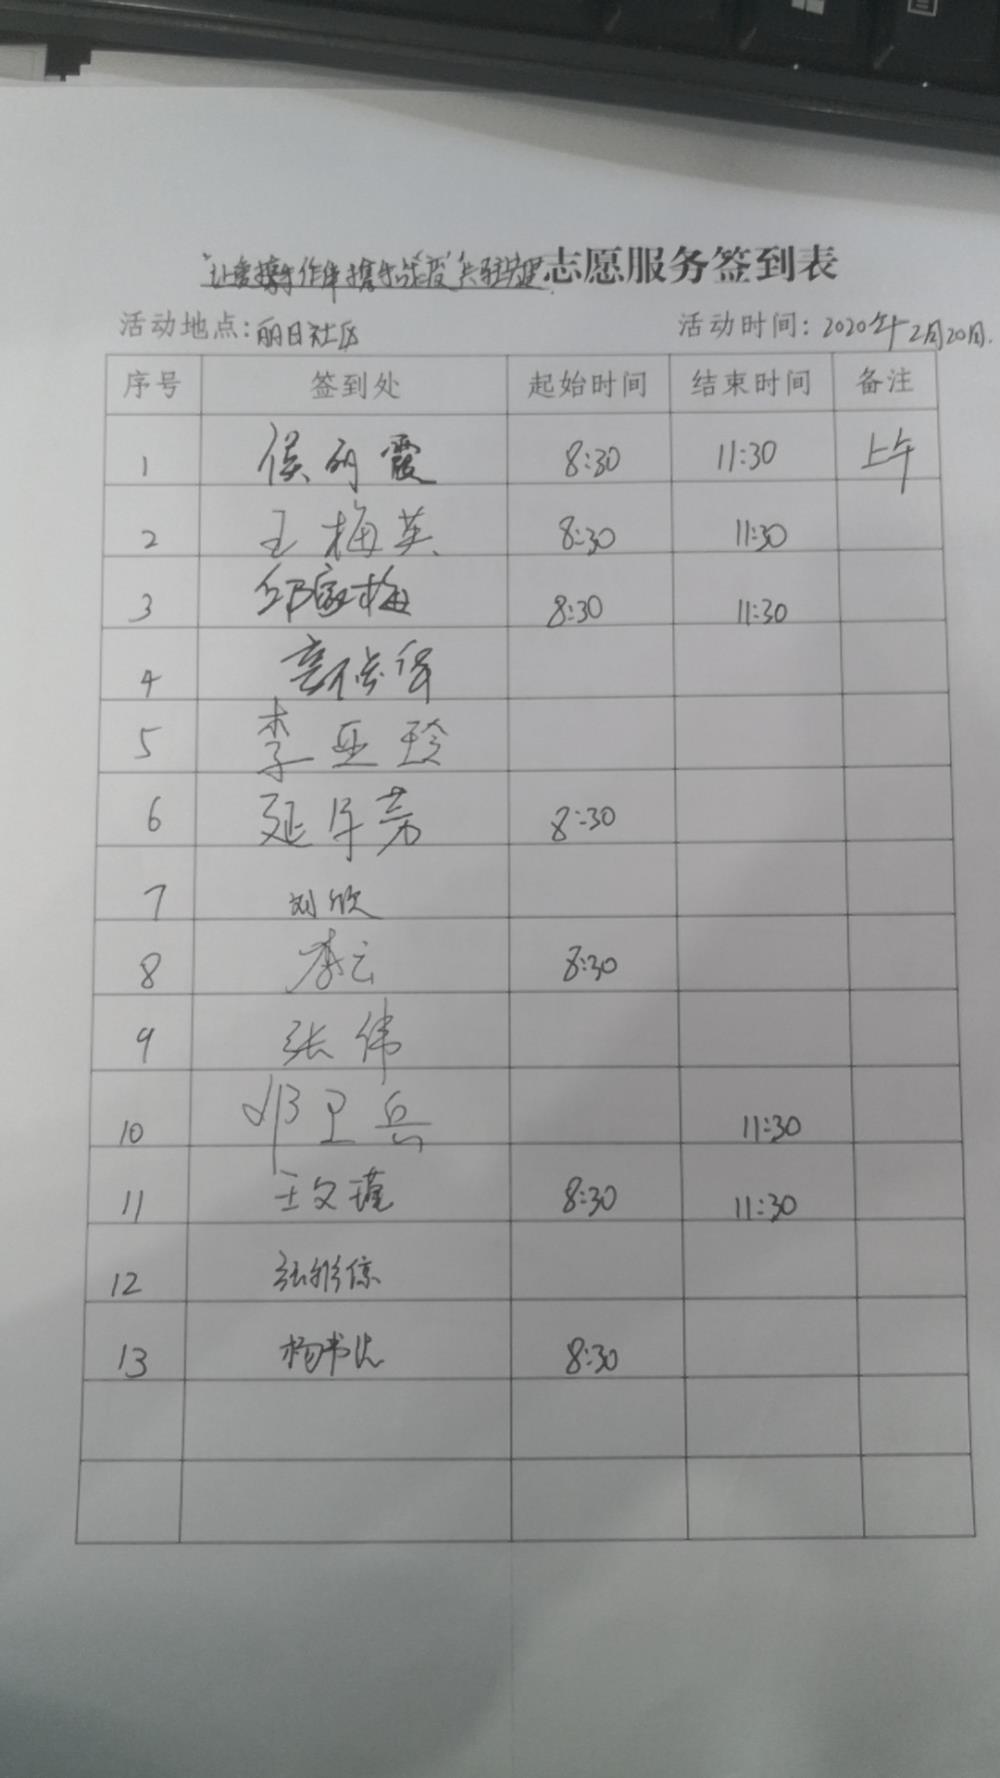 志愿服务签到表
活动地点:丽日社区 活动时间:2020年2月20日.
序号 签到处 起始时间 结束时间 备注
1 侯丽霞 8:30 11:30 上午
2 王梅英 8:30 11:30
3 邹家梅 8:30 11:30
4
5 李亚玲
6 延军芳 8:30
7 刘欣
8 李云 8:30
9 张伟
10 邓卫兵 11:30
11 王文瑾 8:30 11:30
12
13 杨书 8:30